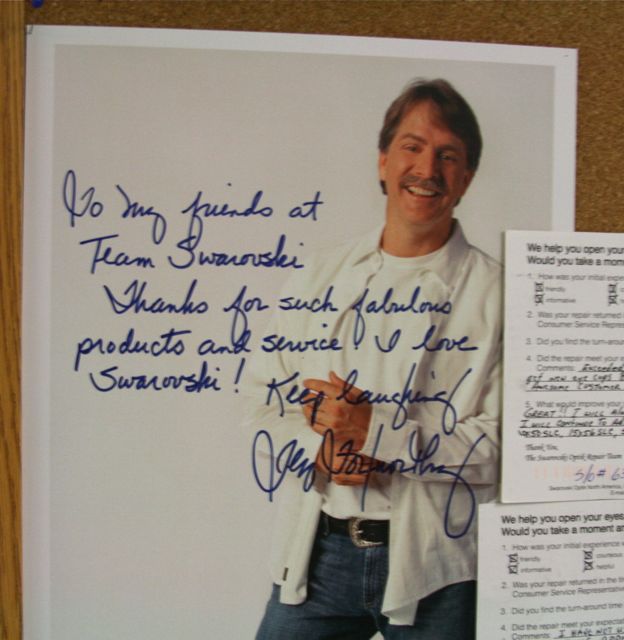 To my friends at
Team Swarovski
Thanks for such fabulous
products and service! I love
Swarovski! Keep laughing
Jeff Foxworthy
We help you open your
Would you take a mom
1. How was your initial expe
friendly
informative
2. Was your repair returned
Consumer Service Repres
3. Did you find the turn-around
4. Did the repair meet your e
Comments: Exceeded
new eye cups
Awesome customer
5. What would improve your
GREAT!! I WILL
I WILL CONTINUE TO
Thank You,
The Swarovski Optik Repair Team
Swarovski Optik North America,
We help you open your eyes
Would you take a moment a
1. How was your initial experience
friendly
courteous
informative
helpful
2. Was your repair returned in the ti
Consumer Service Representative
3. Did you find the turn-around time
4. Did the repair meet your expectat
Comments: I HAVE NOT